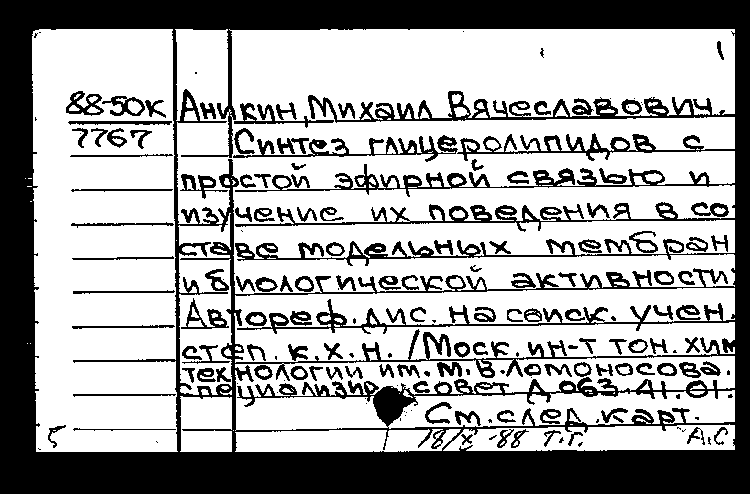 1
88-50К Аникин, Михаил Вячеславович.
7767 Синтез глицеролипидов с
простой эфирной связью и
изучение их поведения в со-
ставе модельных мембран
и биологической активности:
Автореф. дис. на соиск. учен.
степ. к.х.н. /Моск. ин-т тон. хим
технологии им. М.В. Ломоносова.
специализир. совет Д 063-41.01.
См. след. карт.
18/X -88 Т.Т. А.С.